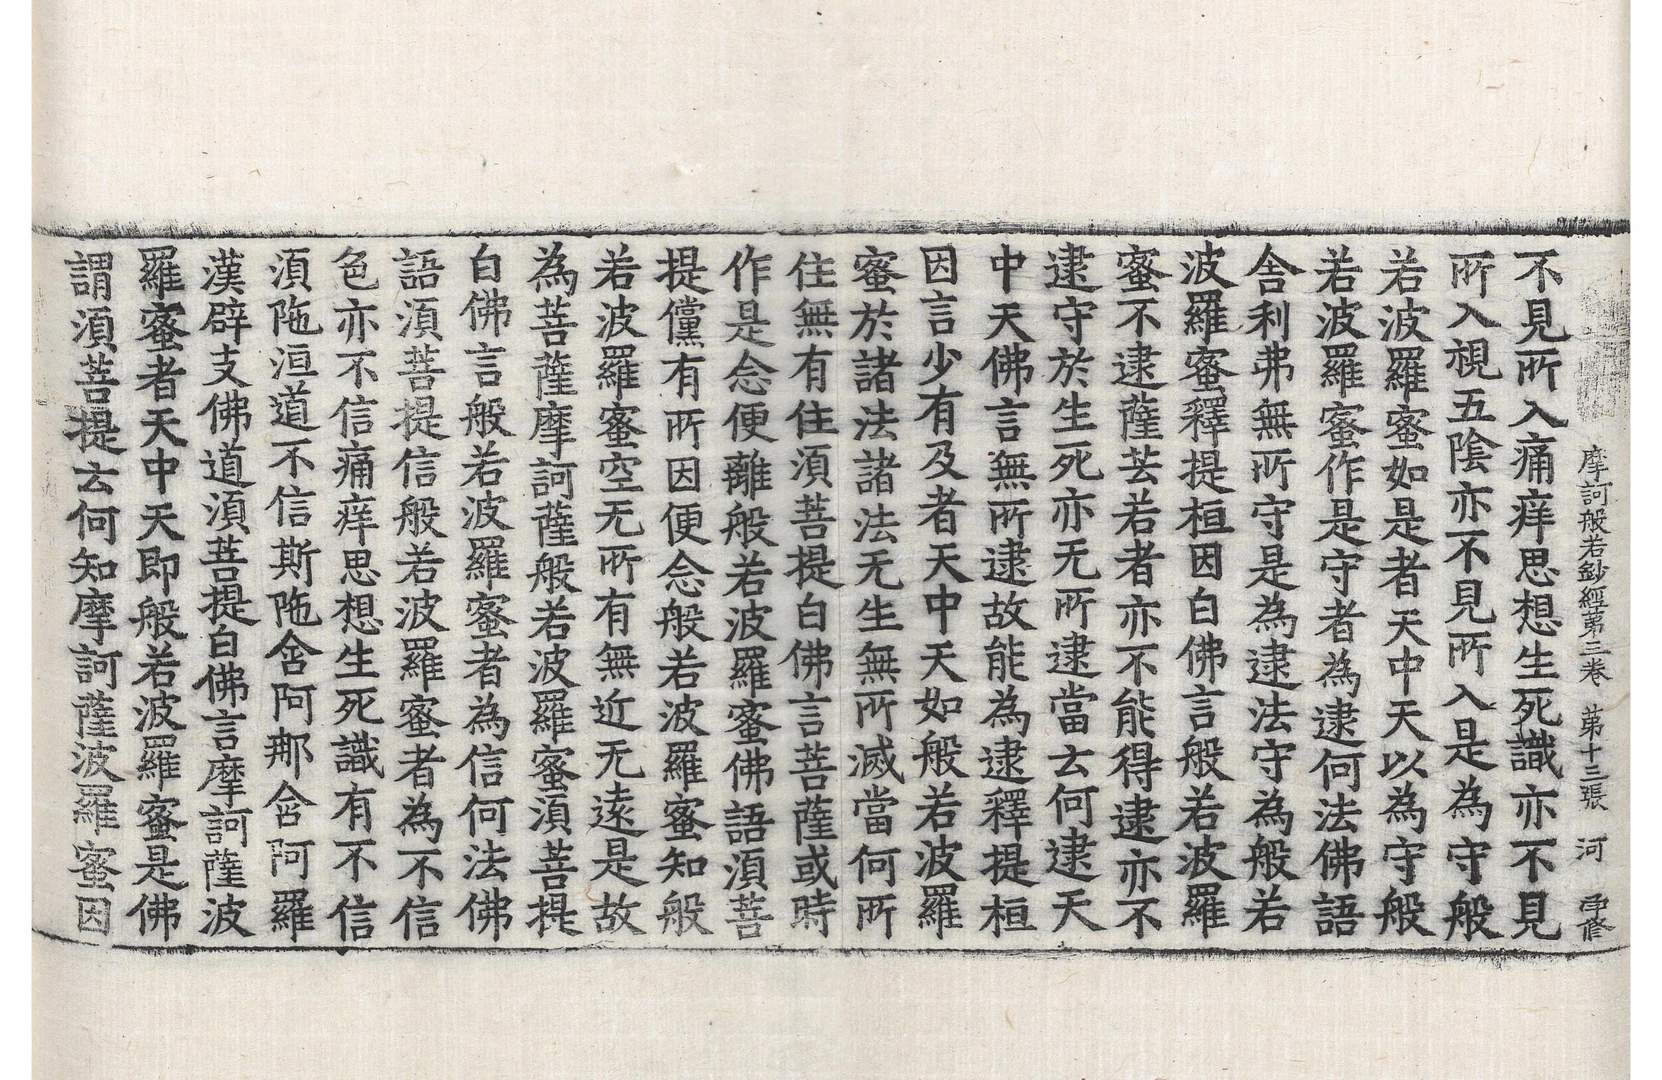 摩訶般若鈔經第三卷 第十三張 河
不見所入痛痒思想生死識亦不見
所入視五陰亦不見所入是為守般
若波羅蜜如是者天中天以為守般
若波羅蜜作是守者為逮何法佛語
舍利弗無所守是為逮法守為般若
波羅蜜釋提桓因白佛言般若波羅
蜜不逮薩芸若者亦不能得逮亦不
逮守於生死亦无所逮當云何逮天
中天佛言無所逮故能為逮釋提桓
因言少有及者天中天如般若波羅
蜜於諸法諸法无生無所滅當何所
住無有住湏菩提白佛言菩薩或時
作是念便離般若波羅蜜佛語湏菩
提儻有所因便念般若波羅蜜知般
若波羅蜜空无所有無近无遠是故
為菩薩摩訶薩般若波羅蜜湏菩提
白佛言般若波羅蜜者為信何法佛
語湏菩提信般若波羅蜜者為不信
色亦不信痛痒思想生死識有不信
湏陁洹道不信斯陁含阿那含阿羅
漢辟支佛道湏菩提白佛言摩訶薩波
羅蜜者天中天即般若波羅蜜是佛
謂湏菩提云何知摩訶薩波羅蜜因